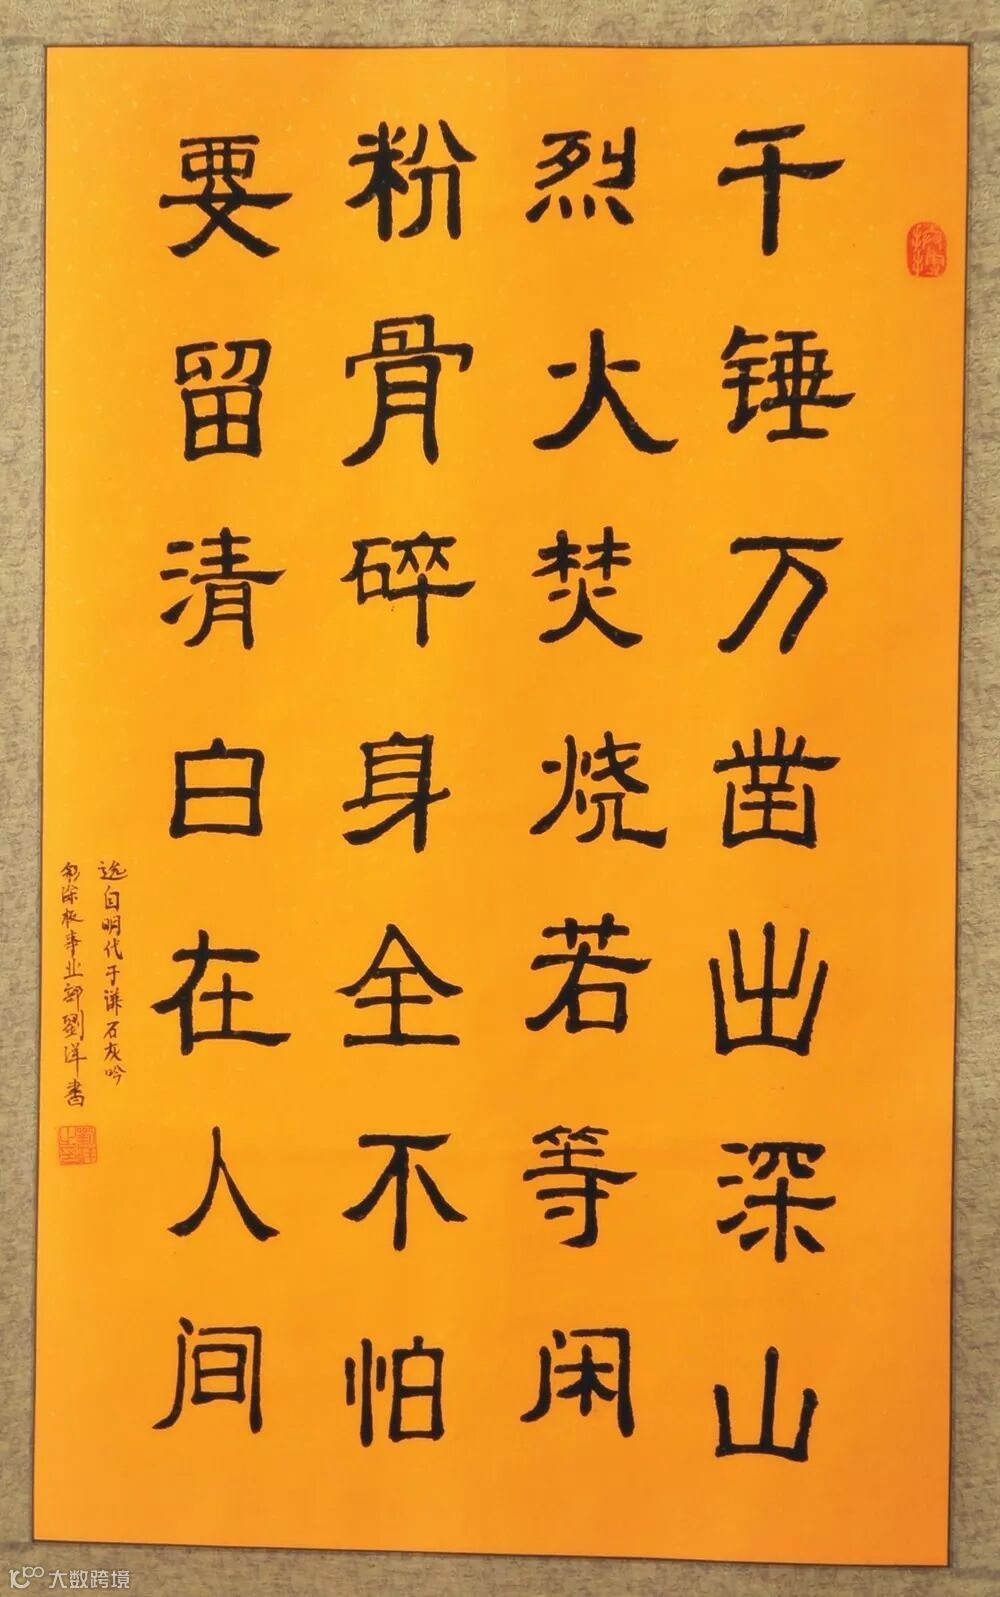 千锤万凿出深山
烈火焚烧若等闲
粉骨碎身全不怕
要留清白在人间
选自明代于谦石灰吟
彩涂板事业部劉洋書
大数跨境